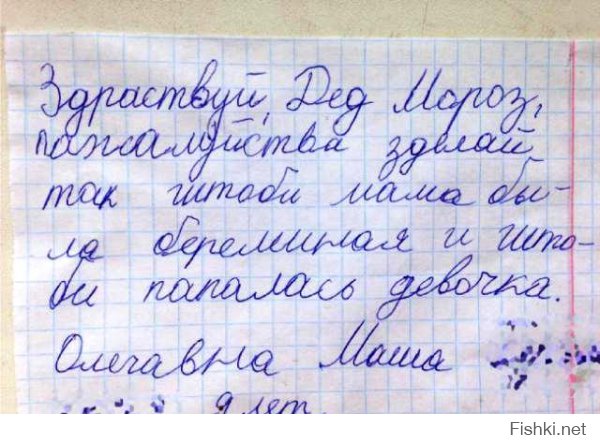 Здраствуй, Дед Мороз,
пажалуйства зделай
так штоби мама бы-
ла береминая и што-
би папалась девочка.
Олегавна Маша
9 лет.
Fishki.net